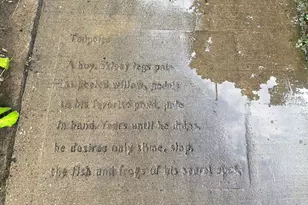 Tadpoles
A boy, skinny legs pale
as peeled willow, pedals
to his favorite pond, pole
in hand. Years until he shaves,
he desires only slime, slap,
the fish and frogs of his secret spot,